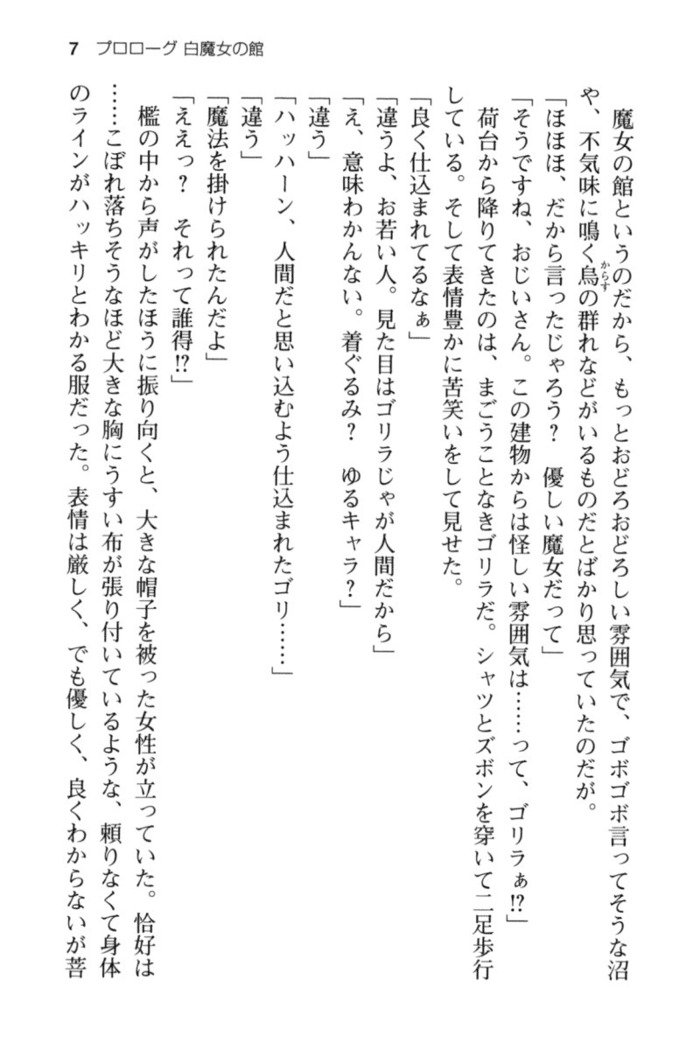 7 プロローグ 白魔女の館
魔女の館というのだから、もっとおどろおどろしい雰囲気で、ゴボゴボ言ってそうな沼
や、不気味に鳴く烏からすの群れなどがいるものだとばかり思っていたのだが。
「ほほほ、だから言ったじゃろう？　優しい魔女だって」
「そうですね、おじいさん。この建物からは怪しい雰囲気は……って、ゴリラぁ!?」
荷台から降りてきたのは、まごうことなきゴリラだ。シャツとズボンを穿いて二足歩行
している。そして表情豊かに苦笑いをして見せた。
「良く仕込まれてるなぁ」
「違うよ、お若い人。見た目はゴリラじゃが人間だから」
「え、意味わかんない。着ぐるみ？　ゆるキャラ？」
「違う」
「ハッハーン、人間だと思い込むよう仕込まれたゴリ……」
「違う」
「魔法を掛けられたんだよ」
「ええっ？　それって誰得!?」
檻の中から声がしたほうに振り向くと、大きな帽子を被った女性が立っていた。恰好は
……こぼれ落ちそうなほど大きな胸にうすい布が張り付いているような、頼りなくて身体
のラインがハッキリとわかる服だった。表情は厳しく、でも優しく、良くわからないが菩